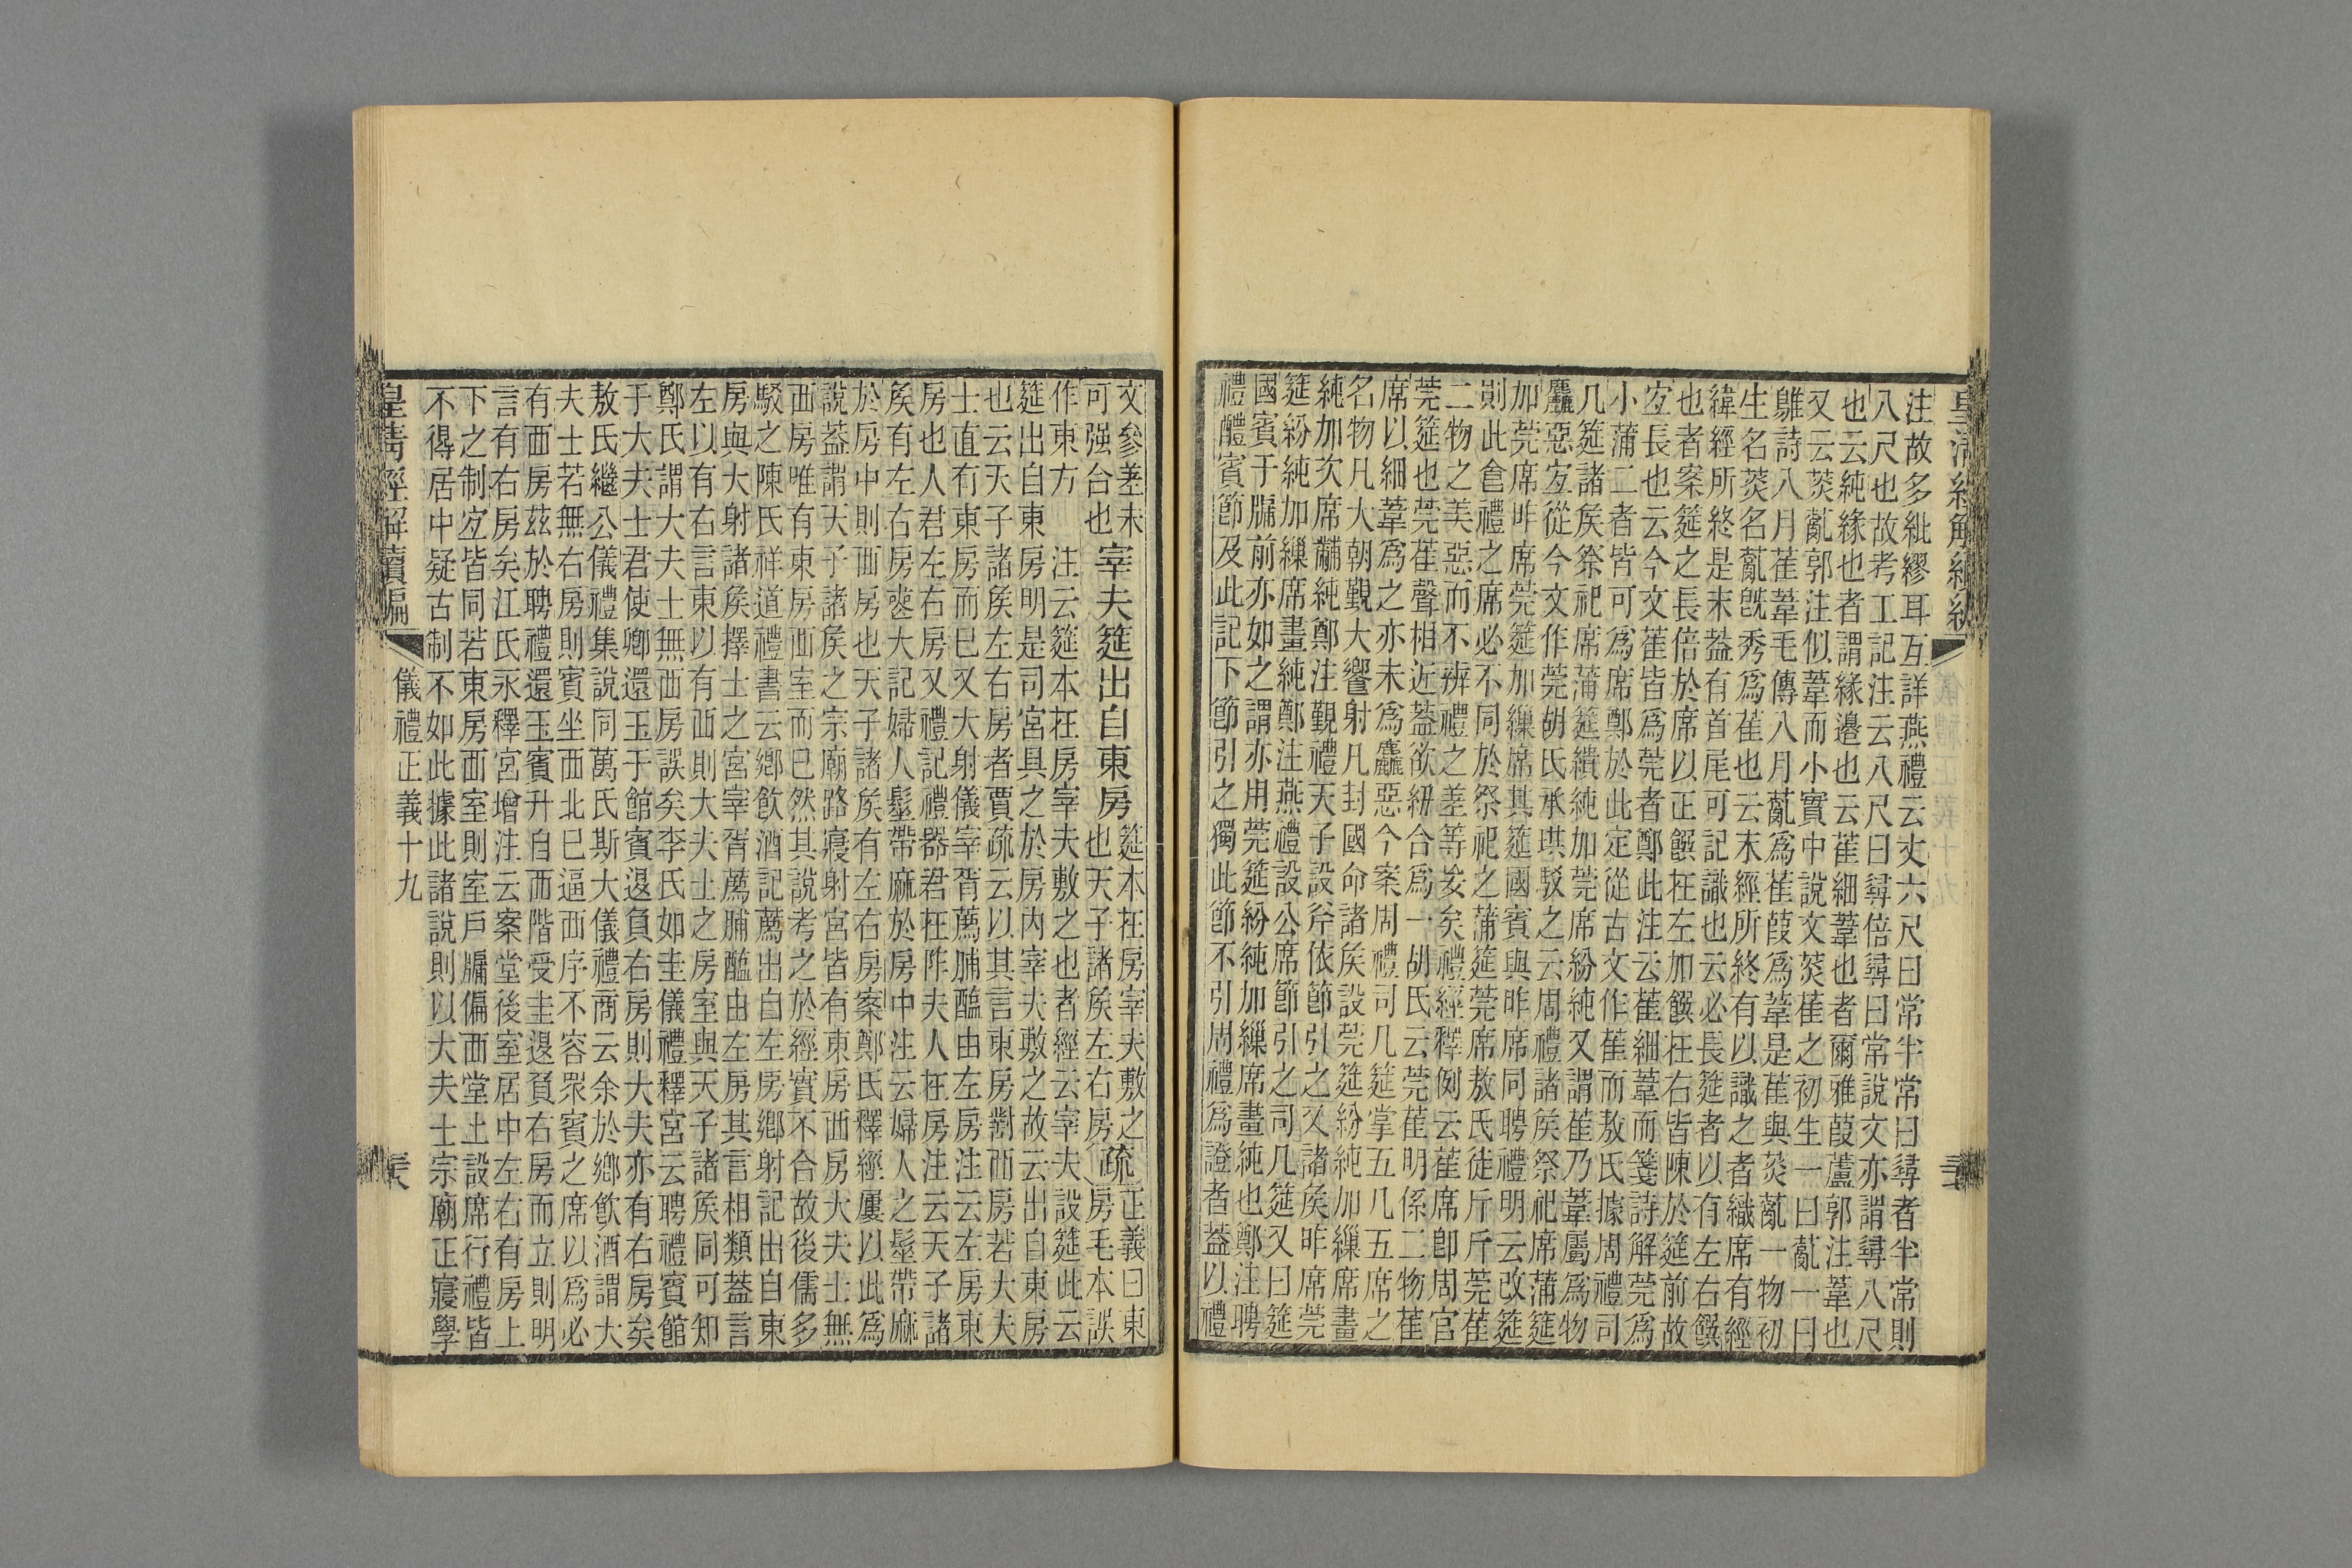 注故多紕繆耳互詳燕禮云丈六尺曰常半常曰尋者半常則
八尺也故考工記注云八尺曰尋倍尋曰常說文亦謂尋八尺
也云純緣也者謂緣邊也云萑細葦也者爾雅葭蘆郭注葦也
又云菼薍郭注似葦而小實中說文菼萑之初生一曰薍一曰
鵻詩八月萑葦毛傳八月薍爲萑葭爲葦是萑與菼薍一物初
生名菼名薍旣秀爲萑也云末經所終有以識之者織席有經
緯經所終是末葢有首尾可記識也云必長筵者以有左右饌
也者案筵之長倍於席以正饌在左加饌在右皆陳於筵前故
宐長也云今文萑皆爲莞者鄭此注云萑細葦而箋詩解莞爲
小蒲二者皆可爲席鄭於此定從古文作萑而敖氏據周禮司
几筵諸矦祭祀席蒲筵繢純加莞席紛純又謂萑乃葦屬爲物
麤惡宐從今文作莞胡氏承珙駁之云周禮諸矦祭祀席蒲筵
加莞席昨席莞筵加繅席其筵國賓與昨席同聘禮明云改筵
則此食禮之席必不同於祭祀之蒲筵莞席敖氏徒斤斤莞萑
二物之美惡而不辨禮之差等妄矣禮經釋例云萑席卽周官
莞筵也莞萑聲相近葢欲紐合爲一胡氏云莞萑明係二物萑
席以細葦爲之亦未爲麤惡今案周禮司几筵掌五几五席之
名物凡大朝覲大饗射凡封國命諸矦設莞筵紛純加繅席畫
純加次席黼純鄭注覲禮天子設斧依節引之又諸矦昨席莞
筵紛純加繅席畫純鄭注燕禮設公席節引之司几筵又曰筵
國賓于牖前亦如之謂亦用莞筵紛純加繅席畫純也鄭注聘
禮醴賓節及此記下節引之獨此節不引周禮爲證者葢以禮
文參差未
可强合也宰夫筵出自東房筵本在房宰夫敷之也天子諸矦左右房疏正義曰東房毛本誤
作東方 注云筵本在房宰夫敷之也者經云宰夫設筵此云
筵出自東房明是司宮具之於房內宰夫敷之故云出自東房
也云天子諸矦左右房者賈疏云以其言東房對西房若大夫
士直有東房而巳又大射儀宰胥薦脯醢由左房注云左房東
房也人君左右房又禮記禮器君在阼夫人在房注云天子諸
矦有左右房喪大記婦人髽帶麻於房中注云婦人之髽帶麻
於房中則西房也天子諸矦有左右房案鄭氏釋經屢以此爲
說葢謂天子諸矦之宗廟路寢射宮皆有東房西房大夫士無
西房唯有東房西室而巳然其說考之於經實不合故後儒多
駁之陳氏祥道禮書云鄉飮酒記薦出自左房鄉射記出自東
房與大射諸矦擇士之宮宰胥薦脯醢由左房其言相類葢言
左以有右言東以有西則大夫士之房室與天子諸矦同可知
鄭氏謂大夫士無西房誤矣李氏如圭儀禮釋宮云聘禮賓館
于大夫士君使卿還玉于館賓退負右房則大夫亦有右房矣
敖氏繼公儀禮集說同萬氏斯大儀禮商云余於鄉飮酒謂大
夫士若無右房則賓坐西北巳逼西序不容眾賓之席以爲必
有西房茲於聘禮還玉賓升自西階受圭退負右房而立則明
言有右房矣江氏永釋宮增注云案堂後室居中左右有房上
下之制宐皆同若東房西室則室戶牖偏西堂上設席行禮皆
不得居中疑古制不如此據此諸說則以大夫士宗廟正寢學
皇淸經解續編 儀禮正義十九